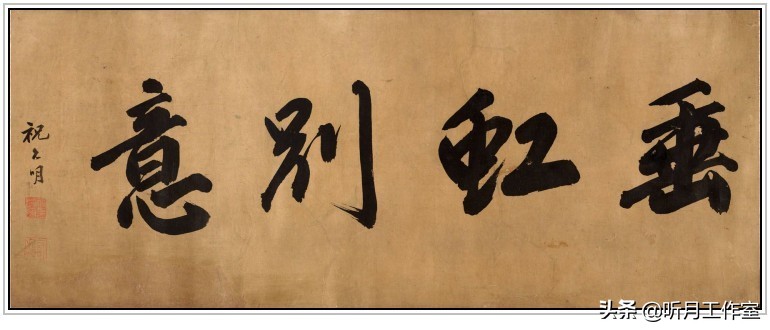 垂虹別意
祝允明
头条 @听月工作室